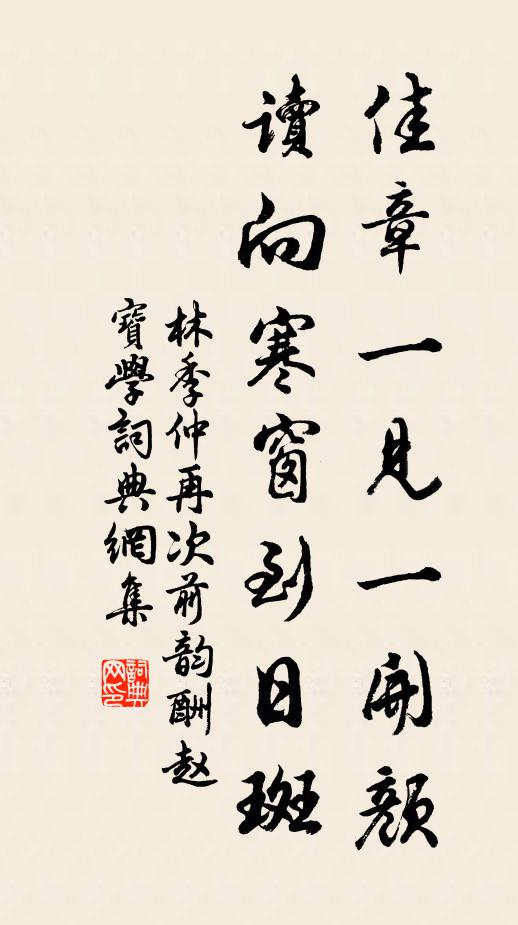 佳章一见一開顔
读向寒窗到日斑
林季仲再次前韵酬赵
寶學詞典網集
詞典网印